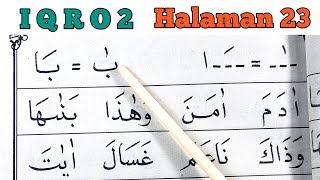 IQRO 2 Halaman 23
ـٰـ = ـَـ ا بٰ = بَا
اٰدَمَ اٰمَنَ وَهٰذَا بَنٰهَا
وَذَاكَ نَاعَمَ غَسَالَ اٰيٰتَ